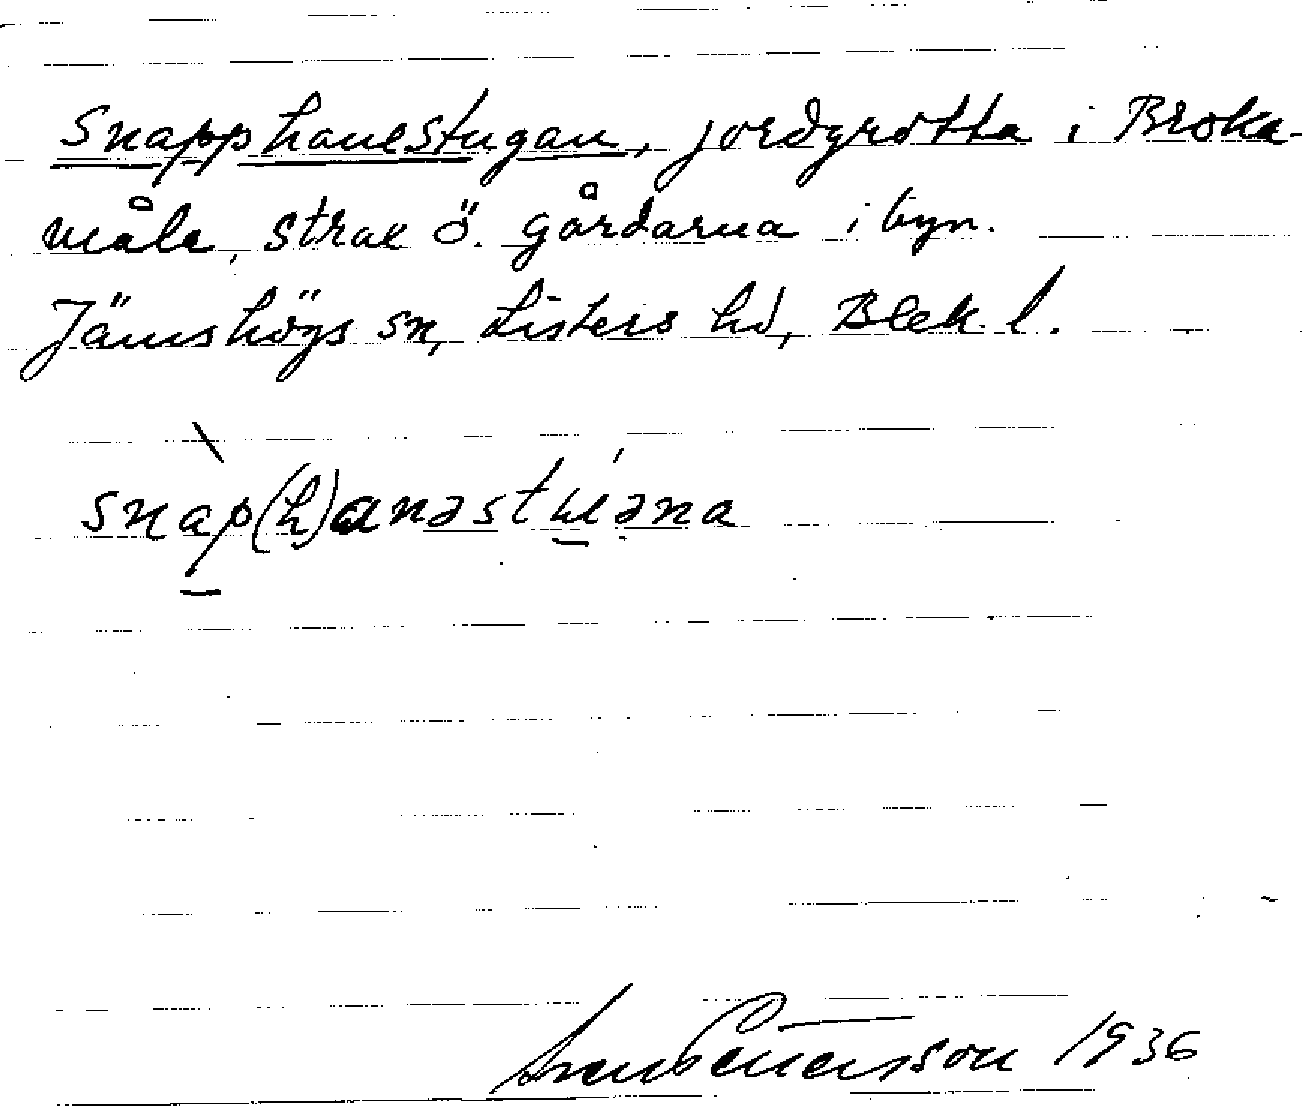 Snapphanestugan, jordgrotta i Broka-
måla, strax ö. gårdarna i byn.
Jämshögs sn, Listers hd, Blek. l.
snàp(h)anəstuəna
Sven Benersson 1936